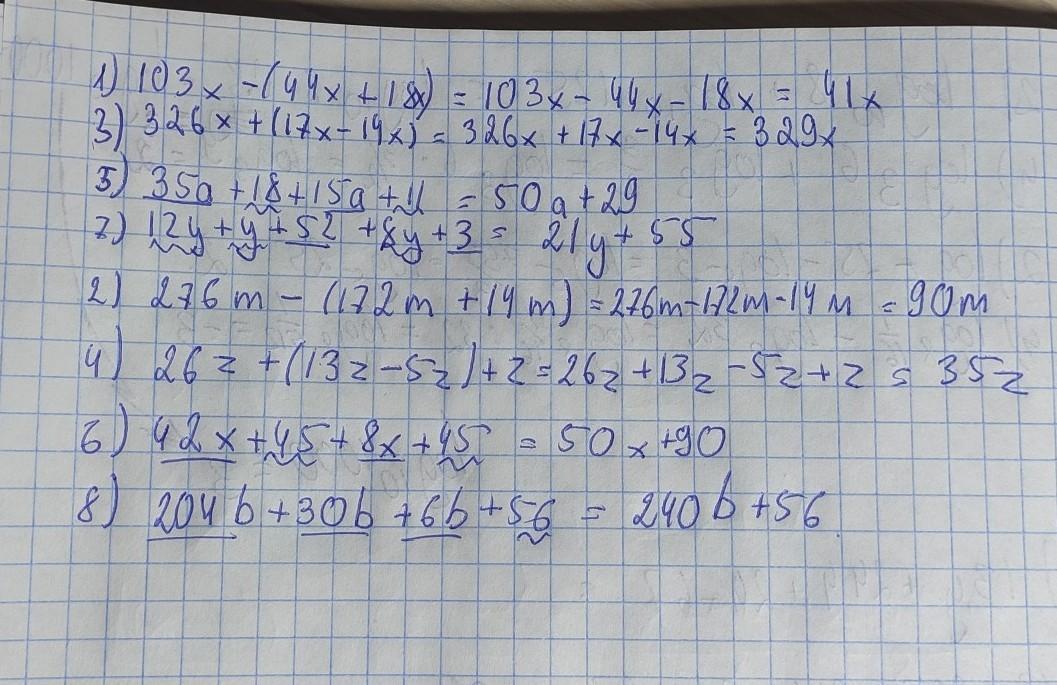 1) 103x - (44x + 18x) = 103x - 44x - 18x = 41x
3) 326x + (17x - 14x) = 326x + 17x - 14x = 329x
5) 35a + 18 + 15a + 11 = 50a + 29
7) 12y + y + 52 + 8y + 3 = 21y + 55
2) 276m - (172m + 14m) = 276m - 172m - 14m = 90m
4) 26z + (13z - 5z) + z = 26z + 13z - 5z + z = 35z
6) 42x + 45 + 8x + 45 = 50x + 90
8) 204b + 30b + 6b + 56 = 240b + 56